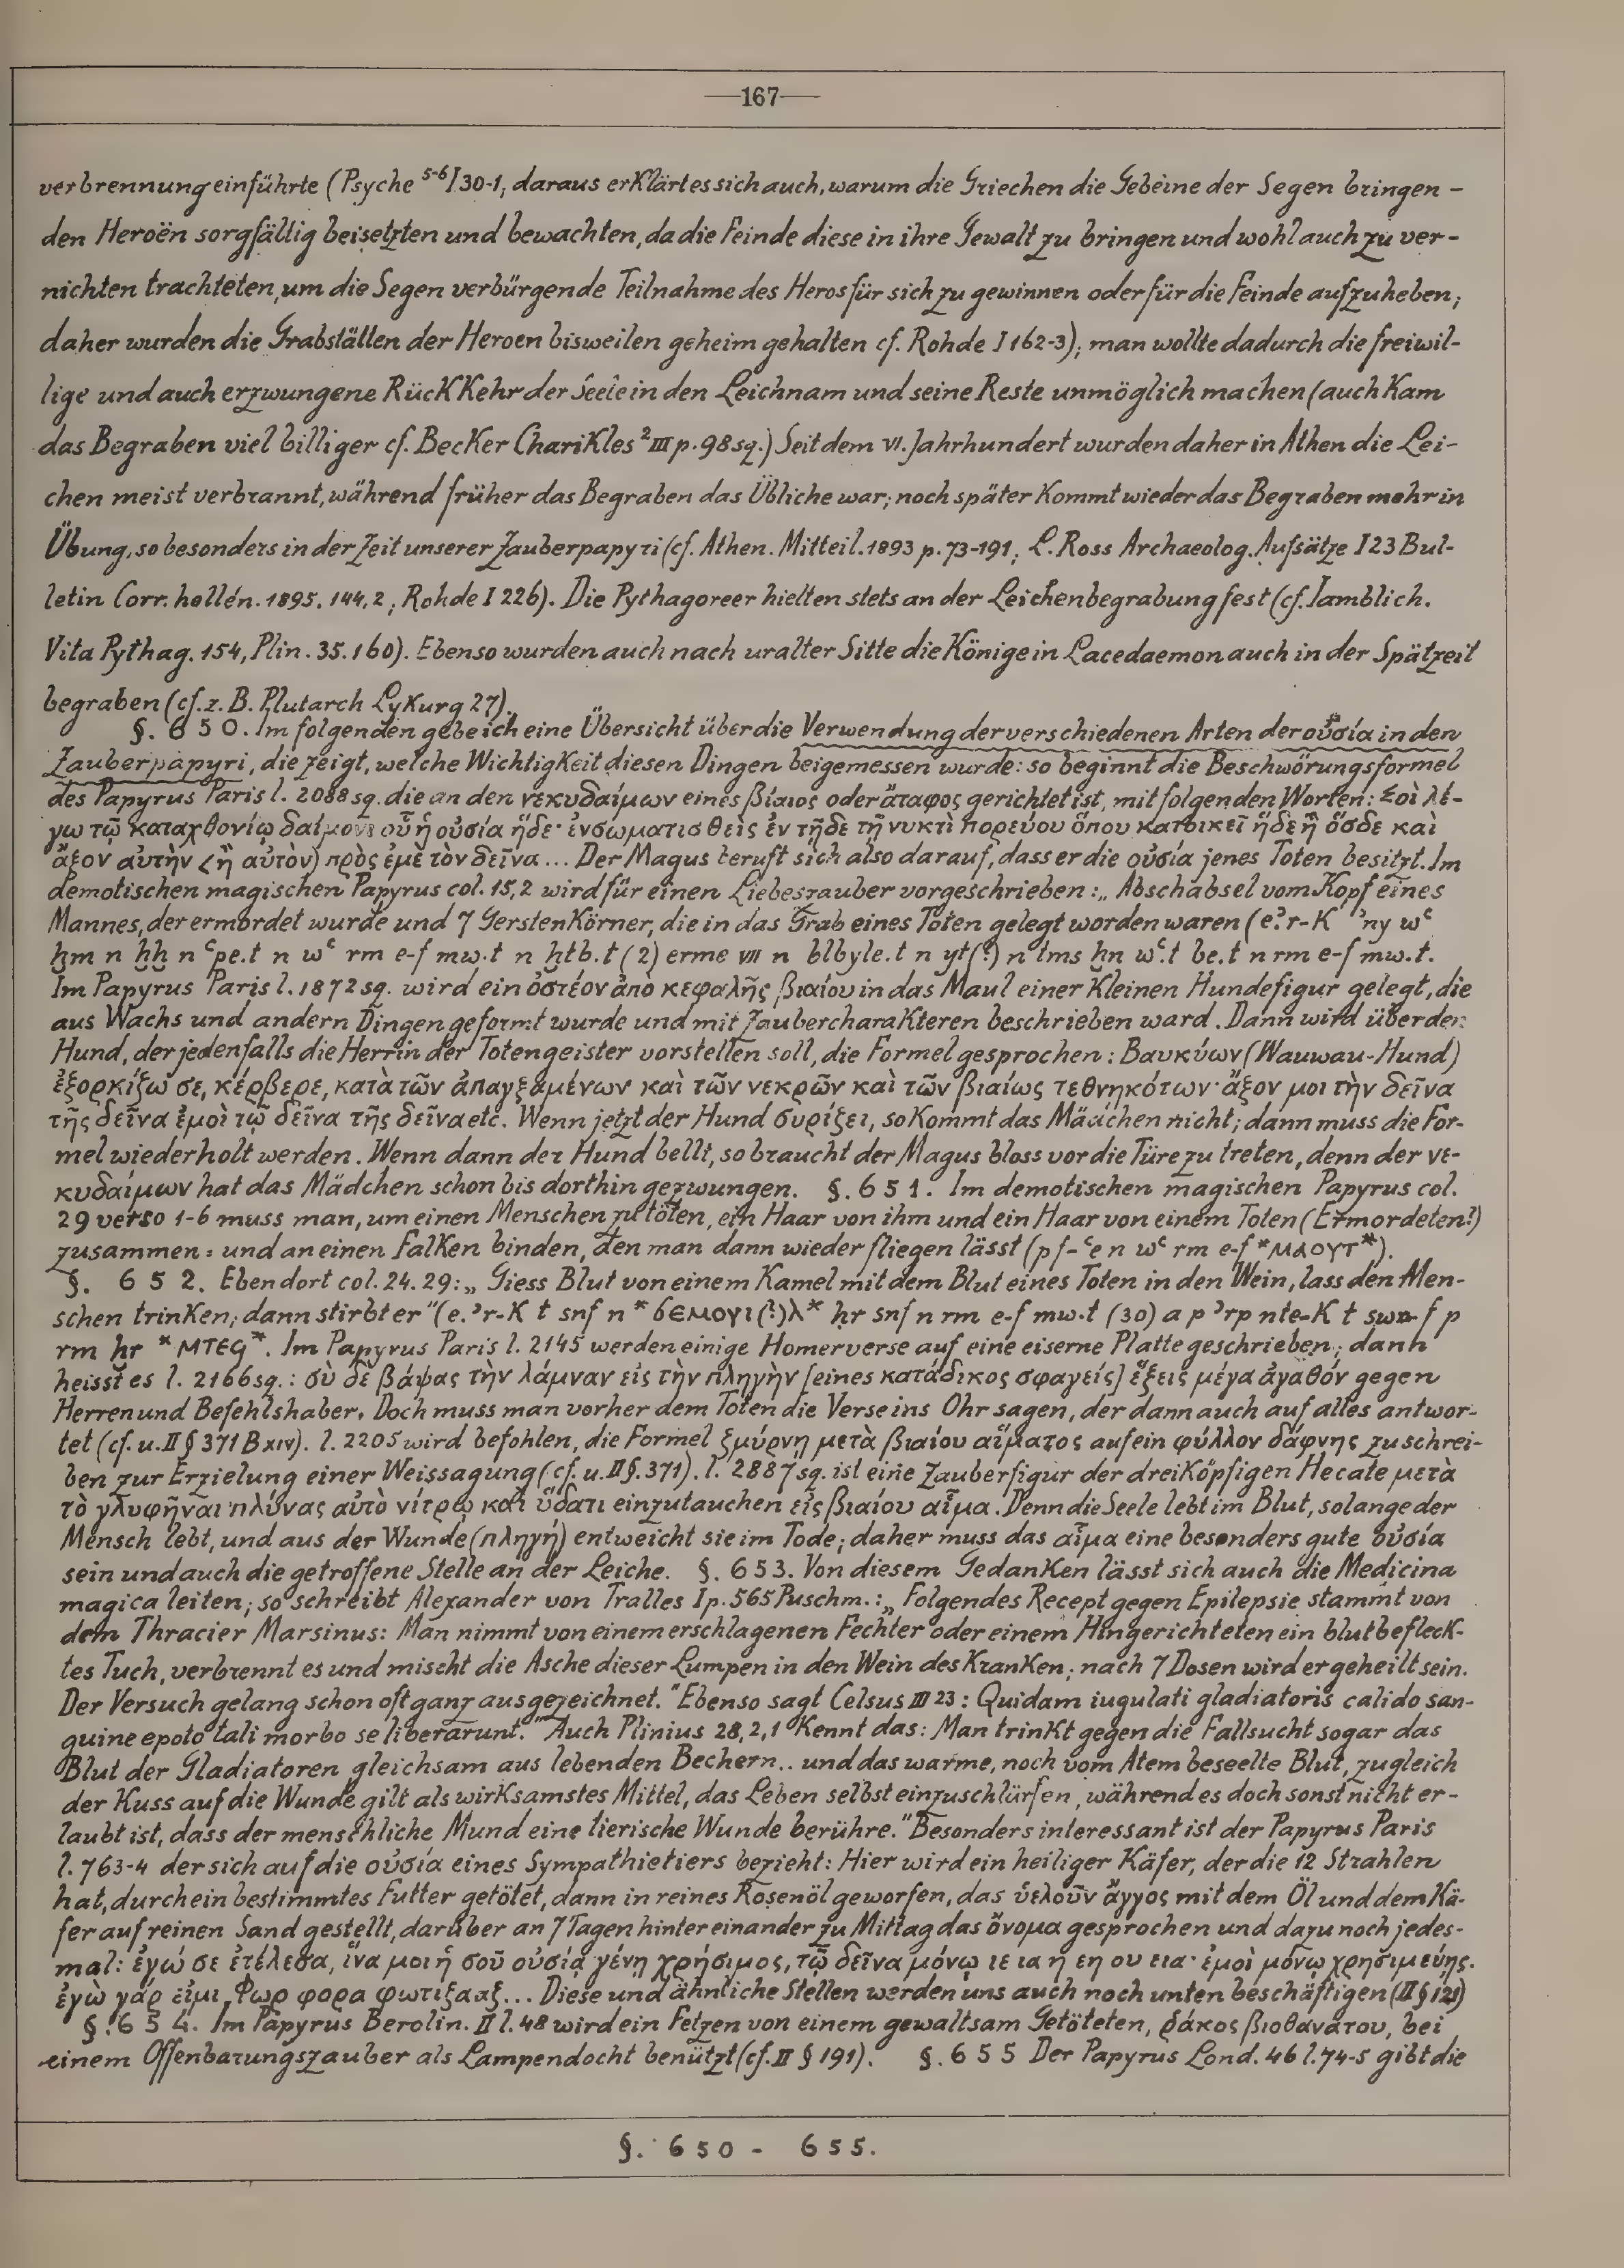 —167—
verbrennung einführte (Psyche 5-6 I 30-1; daraus erklärt es sich auch, warum die Griechen die Gebeine der Segen bringen-
den Heroën sorgfältig beisetzten und bewachten, da die Feinde diese in ihre Gewalt zu bringen und wohl auch zu ver-
nichten trachteten, um die Segen verbürgende Teilnahme des Heros für sich zu gewinnen oder für die Feinde aufzuheben;
daher wurden die Grabstätten der Heroen bisweilen geheim gehalten cf. Rohde I 162-3); man wollte dadurch die freiwil-
lige und auch erzwungene Rückkehr der Seele in den Leichnam und seine Reste unmöglich machen (auch kam
das Begraben viel billiger cf. Becker Charikles ² III p. 98 sq.) Seit dem VI. Jahrhundert wurden daher in Athen die Lei-
chen meist verbrannt, während früher das Begraben das Übliche war; noch später kommt wieder das Begraben mehr in
Übung, so besonders in der Zeit unserer Zauberpapyri (cf. Athen. Mitteil. 1893 p. 73-191; L. Ross Archaeolog. Aufsätze I 23 Bul-
letin Corr. hellén. 1895. 144, 2; Rohde I 226). Die Pythagoreer hielten stets an der Leichenbegrabung fest (cf. Iamblich.
Vita Pythag. 154, Plin. 35. 160). Ebenso wurden auch nach uralter Sitte die Könige in Lacedaemon auch in der Spätzeit
begraben (cf. z. B. Plutarch Lykurg 27).
§. 650. Im folgenden gebe ich eine Übersicht über die Verwendung der verschiedenen Arten der οὐσία in den
Zauberpapyri, die zeigt, welche Wichtigkeit diesen Dingen beigemessen wurde: so beginnt die Beschwörungsformel
des Papyrus Paris l. 2088 sq. die an den νεκυδαίμων eines βίαιος oder ἄταφος gerichtet ist, mit folgenden Worten: Σοὶ λέ-
γω τῷ καταχθονίῳ δαίμονι οὗ ἡ οὐσία ἥδε· ἐνσωματισθεὶς ἐν τῇδε τῇ νυκτὶ πορεύου ὅπου κατοικεῖ ἥδε ἢ ὅσδε καὶ
ἄξον αὐτὴν (ἢ αὐτὸν) πρὸς ἐμὲ τὸν δεῖνα... Der Magus beruft sich also darauf, dass er die οὐσία jenes Toten besitzt. Im
demotischen magischen Papyrus col. 15,2 wird für einen Liebeszauber vorgeschrieben: „Abschabsel vom Kopf eines
Mannes, der ermordet wurde und 7 Gerstenkörner, die in das Grab eines Toten gelegt worden waren (e.ʾr-k ʾny wʿ
ḫm n ḫḫ n ʿpe.t n wʿ rm e-f mw.t n ḫtb.t (2) erme VII n blbyle.t n yt(?) n tms ḫn wʿ.t be.t n rm e-f mw.t.
Im Papyrus Paris l. 1872 sq. wird ein ὀστέον ἀπο κεφαλῆς βιαίου in das Maul einer kleinen Hundefigur gelegt, die
aus Wachs und andern Dingen geformt wurde und mit Zaubercharakteren beschrieben ward. Dann wird über den
Hund, der jedenfalls die Herrin der Totengeister vorstellen soll, die Formel gesprochen: Βαυκύων (Wauwau-Hund)
ἐξορκίζω σε, κέρβερε, κατὰ τῶν ἀπαγξαμένων καὶ τῶν νεκρῶν καὶ τῶν βιαίως τεθνηκότων· ἄξον μοι τὴν δεῖνα
τῆς δεῖνα ἐμοὶ τῷ δεῖνα τῆς δεῖνα etc. Wenn jetzt der Hund συρίζει, so kommt das Mädchen nicht; dann muss die For-
mel wiederholt werden. Wenn dann der Hund bellt, so braucht der Magus bloss vor die Türe zu treten, denn der νε-
κυδαίμων hat das Mädchen schon bis dorthin gezwungen. §. 651. Im demotischen magischen Papyrus col.
29 verso 1-6 muss man, um einen Menschen zu töten, ein Haar von ihm und ein Haar von einem Toten (Ermordeten?)
zusammen- und an einen Falken binden, den man dann wieder fliegen lässt (p f-ʿe n wʿ rm e-f *ⲙⲁⲟⲩⲧ*).
§. 652. Ebendort col. 24. 29: „Giess Blut von einem Kamel mit dem Blut eines Toten in den Wein, lass den Men-
schen trinken; dann stirbt er" (e.ʾr-k t snf n *ϭⲉⲙⲟⲩⲓ(?)ⲗ* ḥr snf n rm e-f mw.t (30) a p ʾrp nte-k t swr-f p
rm ḥr *ⲙⲧⲉϥ*. Im Papyrus Paris l. 2145 werden einige Homerverse auf eine eiserne Platte geschrieben; dann
heisst es l. 2166 sq.: σὺ δὲ βάψας τὴν λάμναν εἰς τὴν πληγὴν [eines κατάδικος σφαγείς] ἕξεις μέγα ἀγαθόν gegen
Herren und Befehlshaber. Doch muss man vorher dem Toten die Verse ins Ohr sagen, der dann auch auf alles antwor-
tet (cf. u. II § 371 B XIV). l. 2205 wird befohlen, die Formel ζμύρνῃ μετὰ βιαίου αἵματος auf ein φύλλον δάφνης zu schrei-
ben zur Erzielung einer Weissagung (cf. u. II §. 371). l. 2887 sq. ist eine Zauberfigur der dreiköpfigen Hecate μετὰ
τὸ γλυφῆναι πλύνας αὐτὸ νίτρῳ καὶ ὕδατι einzutauchen εἰς βιαίου αἷμα. Denn die Seele lebt im Blut, solange der
Mensch lebt, und aus der Wunde (πληγή) entweicht sie im Tode; daher muss das αἷμα eine besonders gute οὐσία
sein und auch die getroffene Stelle an der Leiche. §. 653. Von diesem Gedanken lässt sich auch die Medicina
magica leiten; so schreibt Alexander von Tralles I p. 565 Puschm.: „Folgendes Recept gegen Epilepsie stammt von
dem Thracier Marsinus: Man nimmt von einem erschlagenen Fechter oder einem Hingerichteten ein blutbefleck-
tes Tuch, verbrennt es und mischt die Asche dieser Lumpen in den Wein des Kranken; nach 7 Dosen wird er geheilt sein.
Der Versuch gelang schon oft ganz ausgezeichnet." Ebenso sagt Celsus III 23: Quidam iugulati gladiatoris calido san-
guine epoto tali morbo se liberarunt." Auch Plinius 28,2,1 kennt das: Man trinkt gegen die Fallsucht sogar das
Blut der Gladiatoren gleichsam aus lebenden Bechern.. und das warme, noch vom Atem beseelte Blut, zugleich
der Kuss auf die Wunde gilt als wirksamstes Mittel, das Leben selbst einzuschlürfen, während es doch sonst nicht er-
laubt ist, dass der menschliche Mund eine tierische Wunde berühre." Besonders interessant ist der Papyrus Paris
l. 763-4 der sich auf die οὐσία eines Sympathietiers bezieht: Hier wird ein heiliger Käfer, der die 12 Strahlen
hat, durch ein bestimmtes Futter getötet, dann in reines Rosenöl geworfen, das ὑελοῦν ἄγγος mit dem Öl und dem Kä-
fer auf reinen Sand gestellt, darüber an 7 Tagen hintereinander zu Mittag das ὄνομα gesprochen und dazu noch jedes-
mal: ἐγώ σε ἐτέλεσα, ἵνα μοι ἡ σοῦ οὐσία γένῃ χρήσιμος, τῷ δεῖνα μόνῳ ιε ια η εη ου εια· ἐμοὶ μόνῳ χρησιμεύῃς.
ἐγὼ γάρ εἰμι Φωρ φορα φωτιζααξ... Diese und ähnliche Stellen werden uns auch noch unten beschäftigen (II § 121)
§. 654. Im Papyrus Berolin. II l. 48 wird ein Fetzen von einem gewaltsam Getöteten, ῥάκος βιοθανάτου, bei
einem Offenbarungszauber als Lampendocht benützt (cf. II § 191). §. 655 Der Papyrus Lond. 46 l. 74-5 gibt die
§. 650 - 655.